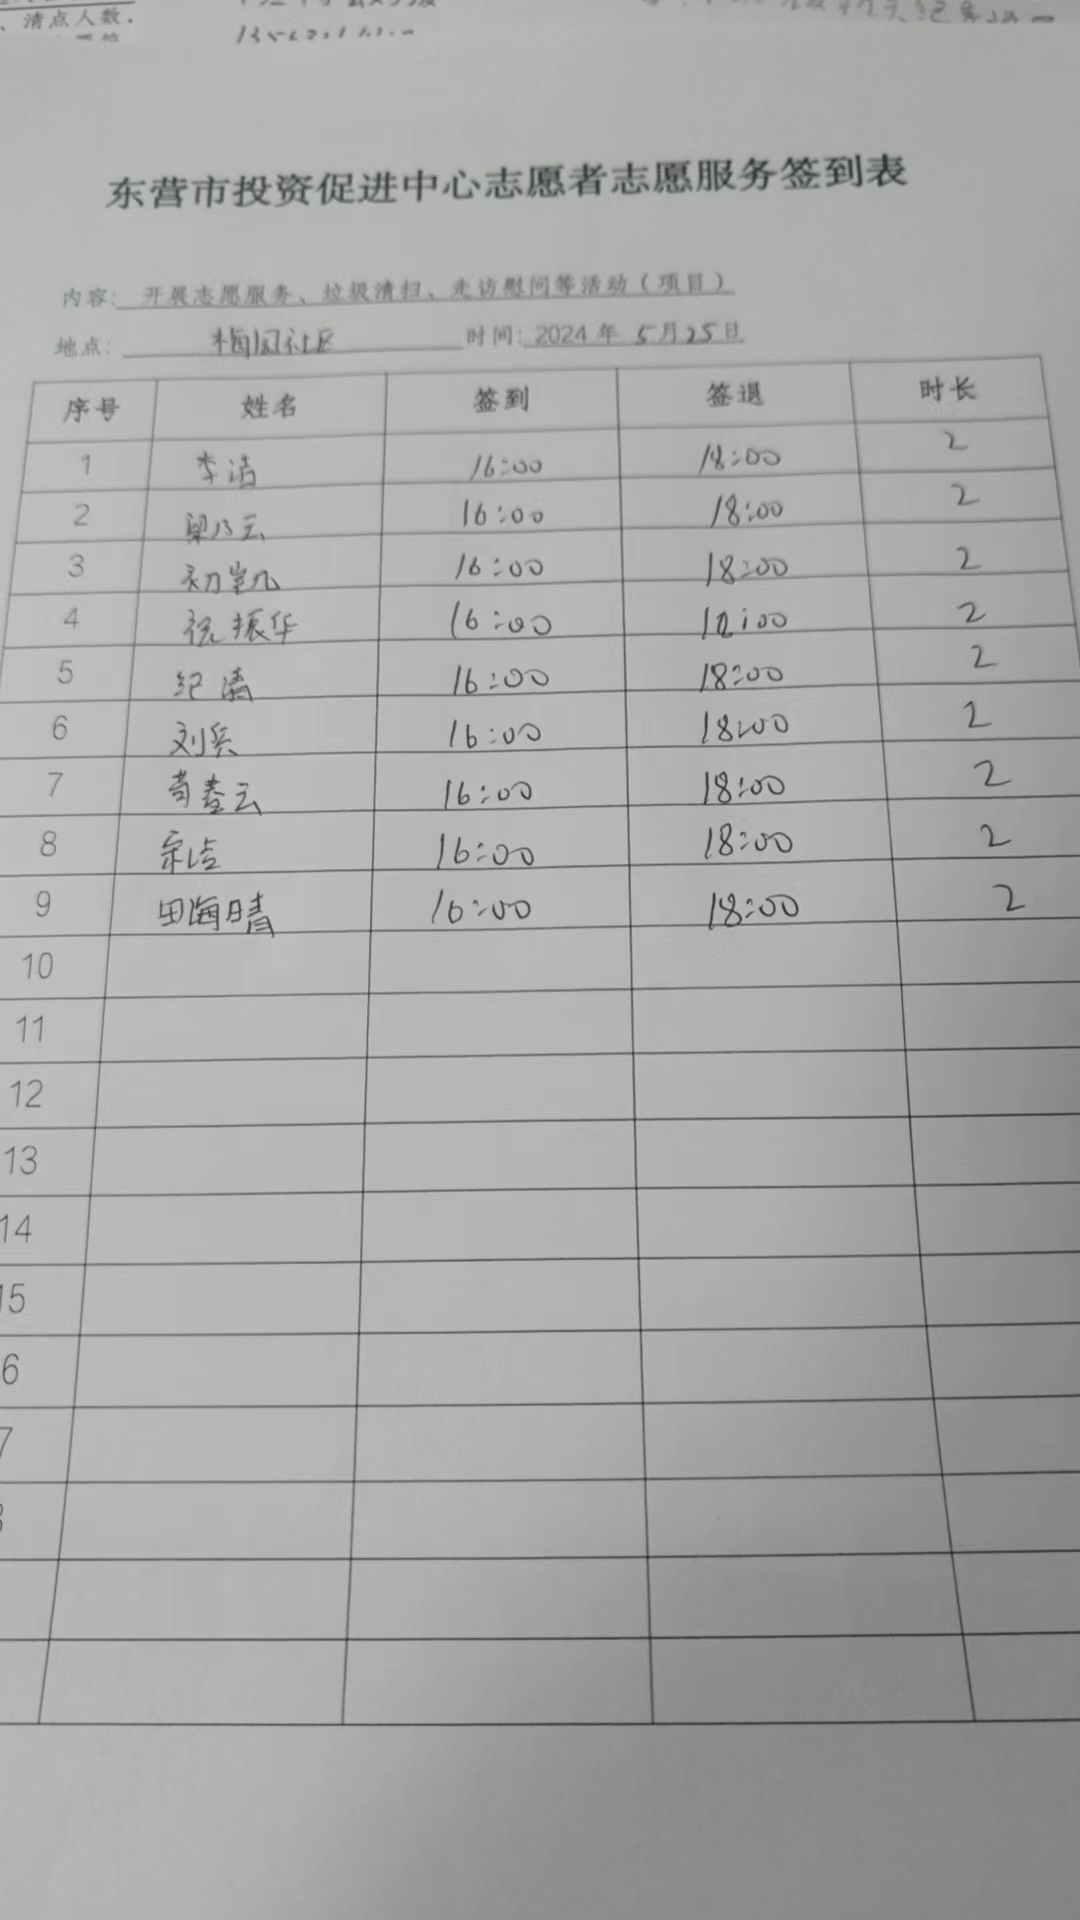 、清点人数，
东营市投资促进中心志愿者志愿服务签到表
内容：开展志愿服务、垃圾清扫、走访慰问等活动（项目）
地点：梅园社区 时间：2024年5月25日
序号 姓名 签到 签退 时长
1 李洁 16:00 18:00 2
2 梁乃云 16:00 18:00 2
3 初 16:00 18:00 2
4 祝振华 16:00 18:00 2
5 纪清 16:00 18:00 2
6 刘兵 16:00 18:00 2
7 苟春云 16:00 18:00 2
8 宋洁 16:00 18:00 2
9 田海晴 16:00 18:00 2
10
11
12
13
14
15
6
7